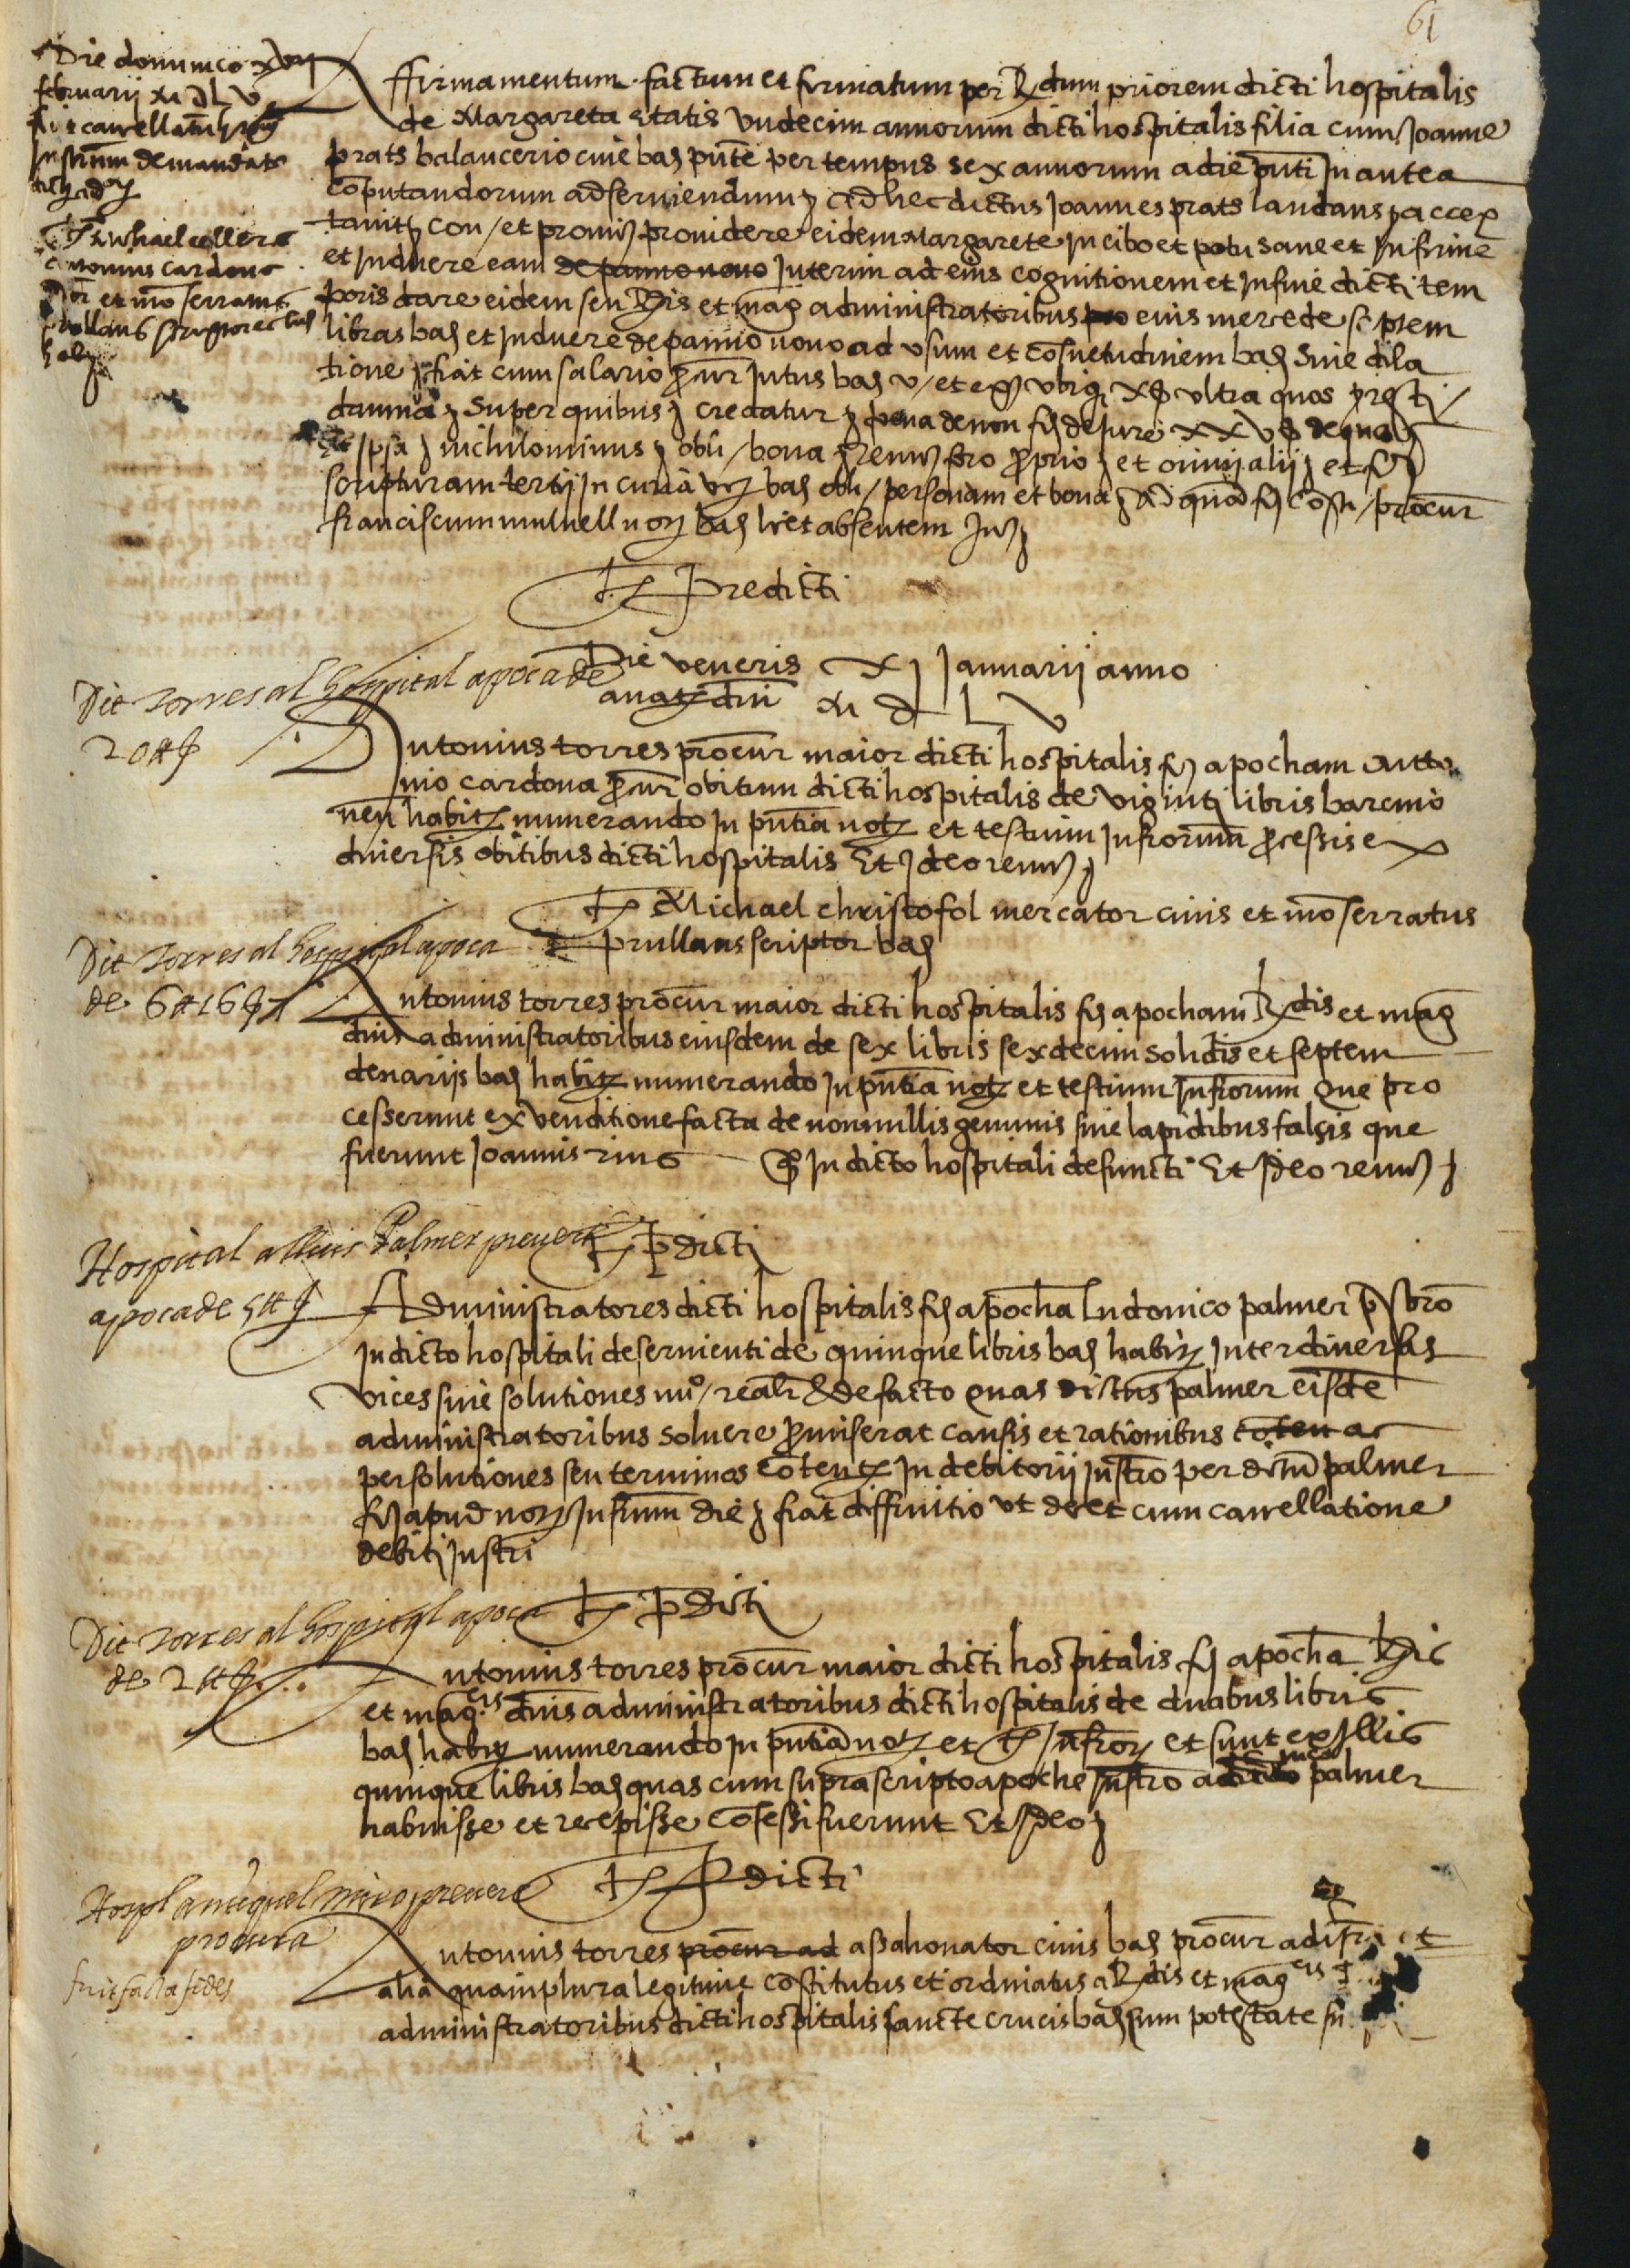 61
Die dominico xvii
februarii M D L V
fuit cancellatum hmoi
Instrum de mandato
Ts Michael cellers
Antonius Cardona
et mō serratus
prullans scriptores bar
hab
Affirmamentum factum et firmatum per Rdum priorem dicti hospitalis
de Margareta etatis undecim annorum dicti hospitalis filia cum Joanne
prats balancerio cive bar pnte per tempus sex annorum a die pnti In antea
cōputandorum ad serviendum Ad hec dictus Joannes prats laudans accep
tavit con / et promis providere eidem Margarete in cibo et potu sane et Infirme
et Induere eam de panno novo Interim ad eius cognitionem et in fine dicti tem
poris dare eidem seu Rdis et mag administratoribus pro eius mercede septem
libras bar et Induere de panno novo ad usum et cōsuetudinem bar sine dila
tione fiat cum salario pcur Intus bar v / et ex ubiq x s ultra quos resti
damna super quibus credatur pena de non fir de jure xx v s de qua
ipsa nichilominus obli / bona renun foro pprio et omni alii et fir
scripturam tertii in curia bar obli / personam et bona Ad quod fir cōsti / procur
franciscum mulnell not bar licet absentem Jur
Ts Predicti
Die veneris xj Januarii anno
a nat dni M D L V
Dit torres al hospital apoca de
20 ll s
Antonius torres procur maior dicti hospitalis fir apocham Anto
nio cardona pcur obituum dicti hospitalis de viginti libris barcino
nen habitz numerando in pntia not et testium infrorum pcessis ex
diversis obitibus dicti hospitalis Et Ideo renun
Ts Michael christofol mercator civis et mōserratus
prullans scriptor bar
Dit torres al hospital apoca
de 6 ll 16 s 7
Antonius torres procur maior dicti hospitalis fir apocham Rdis et mag
dnis administratoribus eiusdem de sex libris sexdecim solidis et septem
denariis bar habitz numerando in pntia not et testium Infrorum Que pro
cesserunt ex venditione facta de nonnullis gemmis sive lapidibus falsis que
fuerunt Joannis rius q in dicto hospitali defuncti Et Ideo renun
Ts pdicti
Hospital a lluis Palmer prevere
apoca de 5 ll s
Administratores dicti hospitalis fir apocha Ludovico palmer psbro
In dicto hospitali deservienti de quinque libris bar habitz Inter diversas
vices sive solutiones nuo / realr & de facto quas dictus palmer eisdē
administratoribus solvere pmiserat causis et rationibus cōten ac
per solutiones seu terminos cōtentz In debitorii instro per dictū palmer
fir apud not Infrum die fiat diffinitio ut decet cum cancellatione
debiti Instri
Ts pdicti
Dit torres al hospital apoca
de 2 ll s
Antonius torres procur maior dicti hospitalis fir apocha Rdis
et mag.cis dnis administratoribus dicti hospitalis de duabus libris
bar habitz numerando In pntia not et ts Infror et sunt ex Illis
quinque libris bar quas cum suprascripto apoche Instro a dicto palmer
habuisse et recepisse cōfessi fuerunt Et Ideo
Ts pdicti
Hospl a miquel miro prevere
procura
fuit facta fides
Antonius torres procur ad assahonator civis bar procur ad ifra et
alia quamplura legitime cōstitutus et ordinatus a Rdis et mag cis
administratoribus dicti hospitalis sancte crucis bar sum potestate